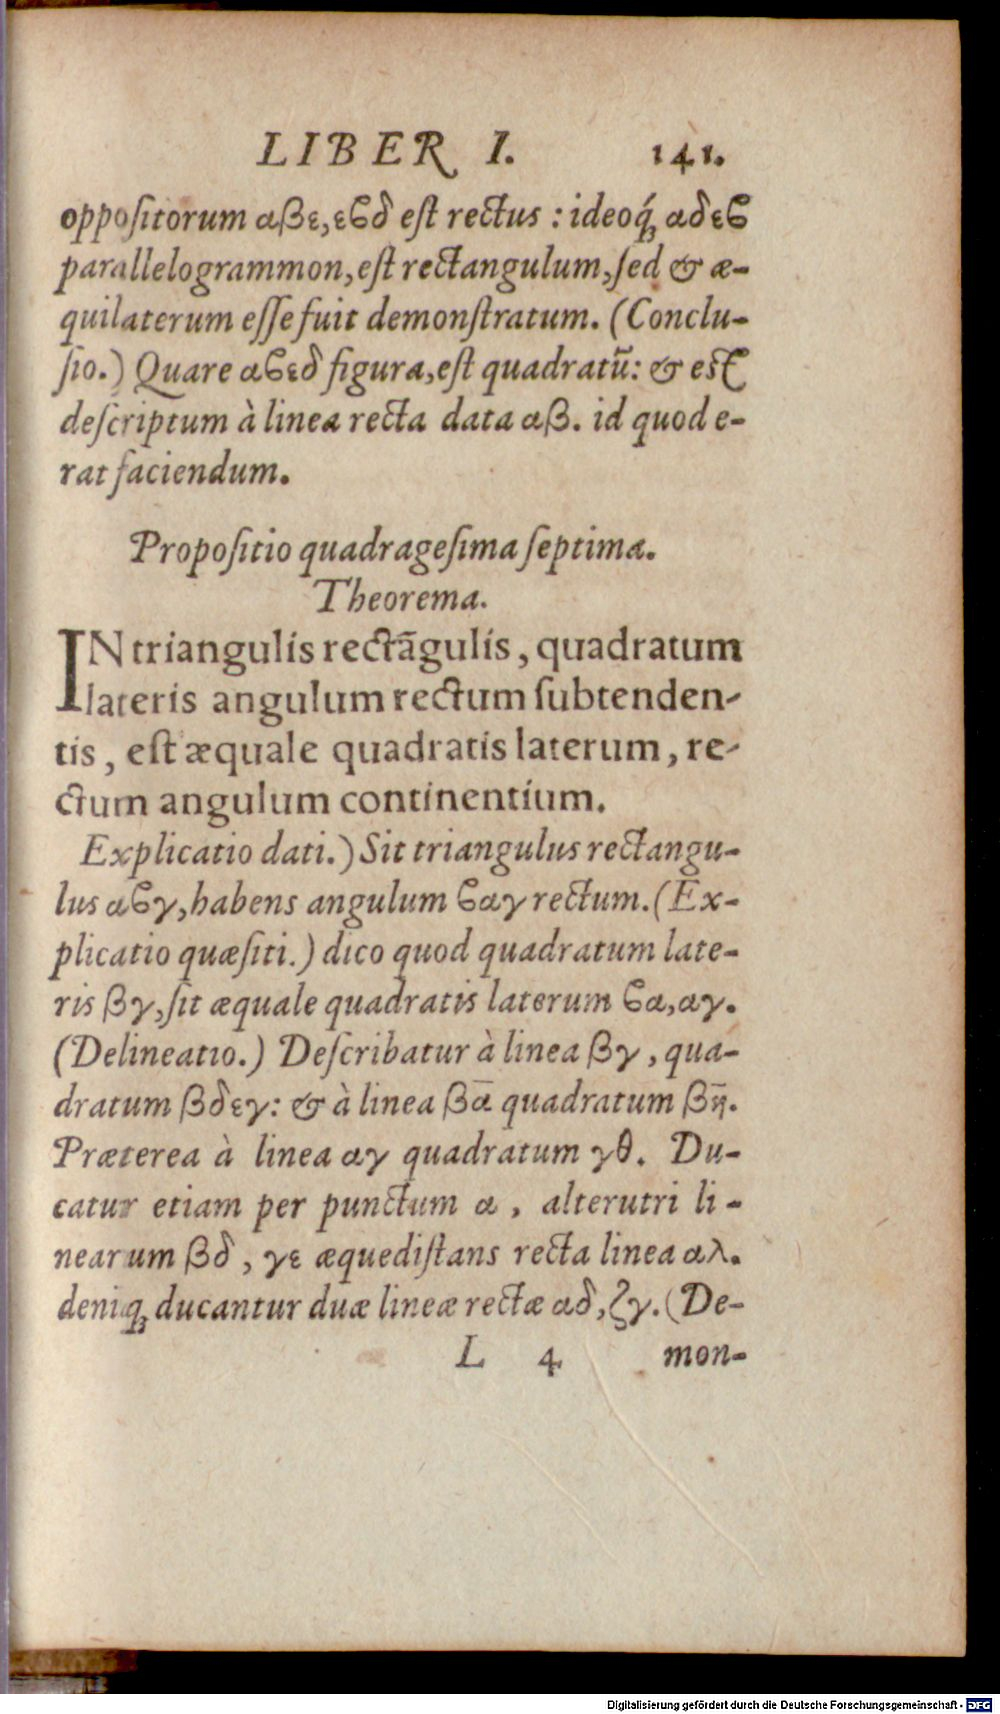 LIBER I. 141.
oppoſitorum αβε, εϐδ eſt rectus : ideoq́ꝫ αδεϐ
parallelogrammon, eſt rectangulum, ſed & æ-
quilaterum eſſe fuit demonſtratum. (Conclu-
ſio.) Quare αϐεδ figura, eſt quadratū: & est
deſcriptum à linea recta data αβ. id quod e-
rat faciendum.
Propoſitio quadrageſima ſeptima.
Theorema.
IN triangulis rectāgulis, quadratum
lateris angulum rectum ſubtenden-
tis, eſt æquale quadratis laterum, re-
ctum angulum continentium.
Explicatio dati.) Sit triangulus rectangu-
lus αϐγ, habens angulum ϐαγ rectum. (Ex-
plicatio quæſiti.) dico quod quadratum late-
ris βγ, ſit æquale quadratis laterum ϐα, αγ.
(Delineatio.) Deſcribatur à linea βγ, qua-
dratum βδεγ: & à linea βᾱ quadratum βη̄.
Præterea à linea αγ quadratum γθ. Du-
catur etiam per punctum α, alterutri li-
nearum βδ, γε æquediſtans recta linea αλ.
deniqꝫ ducantur duæ lineæ rectæ αδ, ζγ. (De-
L 4 mon-
Digitalisierung gefördert durch die Deutsche Forschungsgemeinschaft - DFG